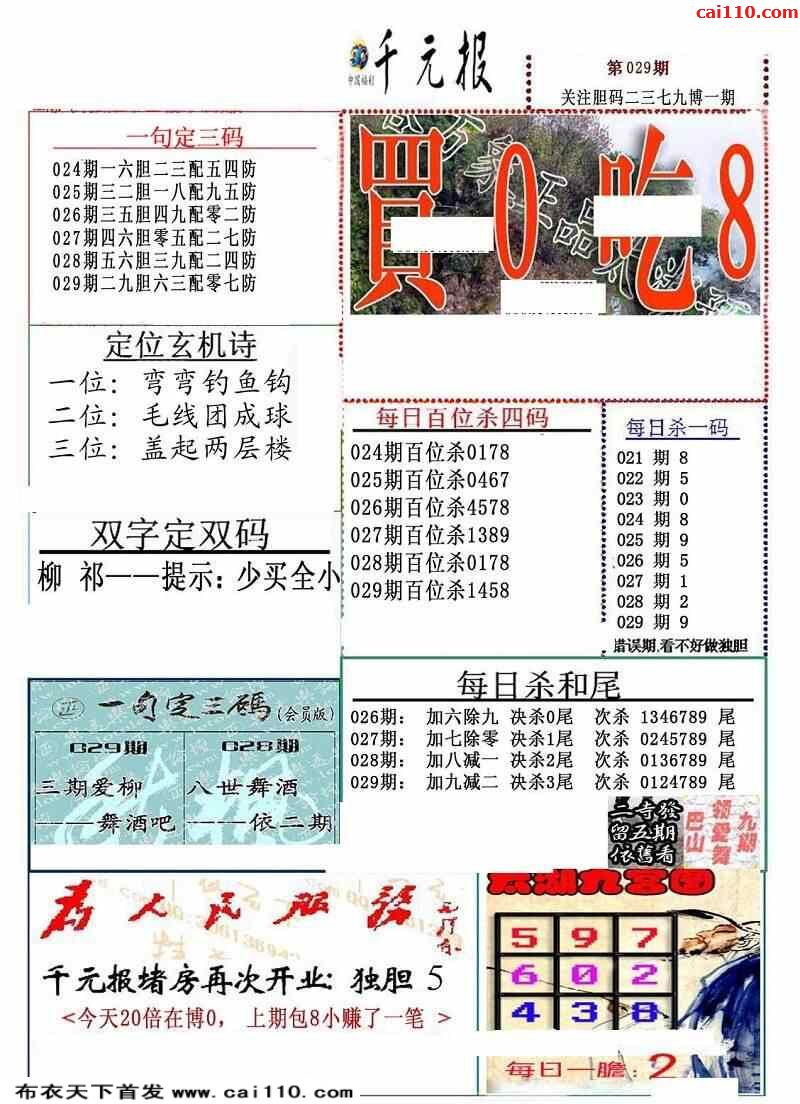 cai110.com
中国福利
千元报
第029期
关注胆码二三七九博一期
一句定三码
024期一六胆二三配五四防
025期三二胆一八配九五防
026期三五胆四九配零二防
027期四六胆零五配二七防
028期五六胆三九配二四防
029期二九胆六三配零七防
買0吃8
定位玄机诗
一位：弯弯钓鱼钩
二位：毛线团成球
三位：盖起两层楼
每日百位杀四码
024期百位杀0178
025期百位杀0467
026期百位杀4578
027期百位杀1389
028期百位杀0178
029期百位杀1458
每日杀一码
021 期 8
022 期 5
023 期 0
024 期 8
025 期 9
026 期 5
027 期 1
028 期 2
029 期 9
错误期.看不好做独胆
双字定双码
柳 祁——提示：少买全小
每日杀和尾
026期： 加六除九 决杀0尾 次杀 1346789 尾
027期： 加七除零 决杀1尾 次杀 0245789 尾
028期： 加八减一 决杀2尾 次杀 0136789 尾
029期： 加九减二 决杀3尾 次杀 0124789 尾
一句定三碼(会员版)
029期 028期
三期爱柳 八世舞酒
——舞酒吧 ——依二期
三寺發
留五期
依舊看
九期
领愛舞
巴山
为人民服務
千元报堵房再次开业：独胆 5
<今天20倍在博0， 上期包8小赚了一笔 >
九宫图
5 9 7
6 0 2
4 3 8
每日一膽：2
布衣天下首发 www.cai110.com